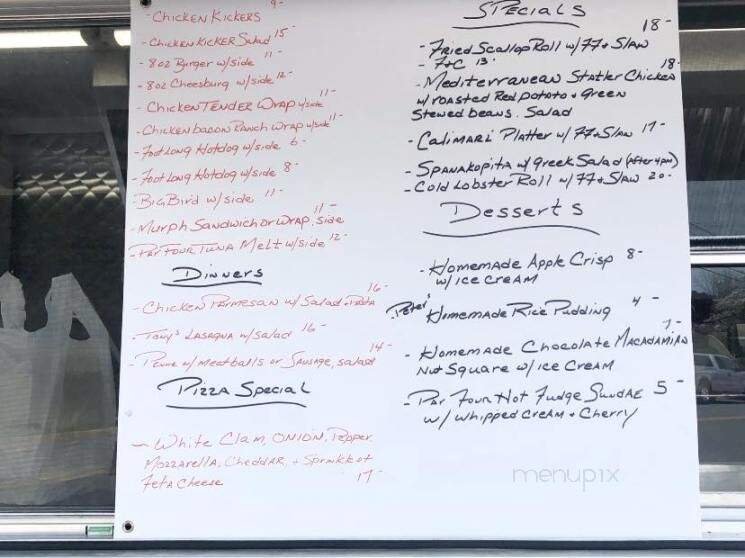 - Chicken Kickers 9-
- Chicken Kicker Salad 15-
- 8oz Burger w/side 11-
- 8oz Cheesburg w/side 12-
- Chicken Tender Wrap w/side 11-
- Chicken bacon Ranch Wrap w/side 11-
- Foot Long Hotdog w/side 6-
- Foot Long Hotdog w/side 8-
- Big Bird w/side 11-
- Murph Sandwich or Wrap, side 11-
- Par Four Tuna Melt w/side 12-
Dinners
- Chicken Parmesan w/ Salad + Pasta 16-
- Tony's Lasagna w/salad 16-
- Penne w/ meatballs or Sausage, salad 14-
Pizza Special
- White Clam, Onion, Pepper
Mozzarella, Cheddar, + Sprinkle of
Feta Cheese 17-
Specials
- Fried Scallop Roll w/ FF + Slaw 18-
- F+C 13-
- Mediterranean Statler Chicken 18-
w/ roasted Red potato + Green
Stewed beans. Salad
- Calimari Platter w/ FF + Slaw 17-
- Spanakopita w/ Greek Salad (after 4pm)
- Cold Lobster Roll w/ FF + Slaw 20-
Desserts
- Homemade Apple Crisp 8-
w/ ice cream
Peter's Homemade Rice Pudding 4-
- Homemade Chocolate Macadamian 7-
Nut Square w/ ice cream
- Par Four Hot Fudge Sundae 5-
w/ whipped cream + Cherry
menupix